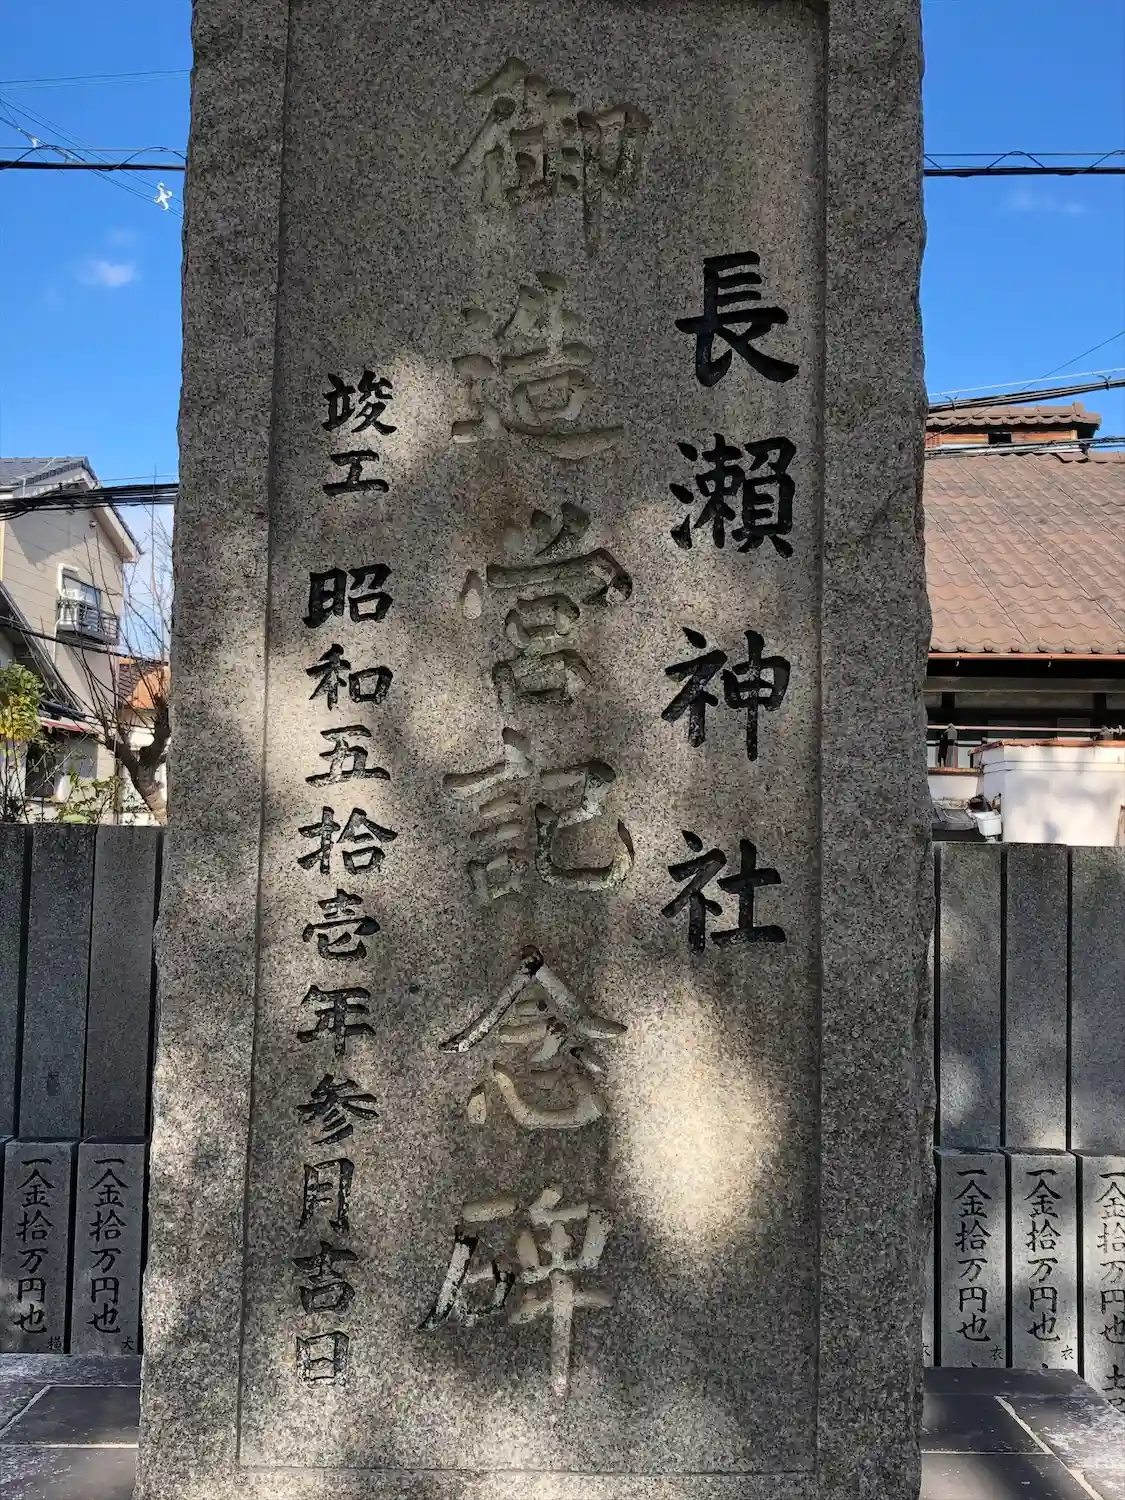 長瀬神社
御造営記念碑
竣工 昭和五拾壱年参月吉日
一金拾万円也
一金拾万円也
一金拾万円也 衣
一金拾万円也 衣
一金拾万円也 大
一金拾万円也 横